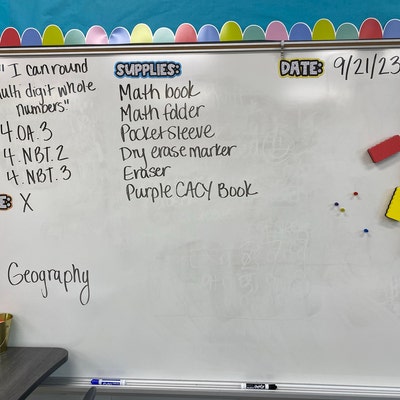 " I can round
multi digit whole
numbers."
4.OA.3
4.NBT.2
4.NBT.3
X
Geography
SUPPLIES:
Math book
Math folder
Pocket sleeve
Dry erase marker
Eraser
Purple CACY Book
DATE: 9/21/23